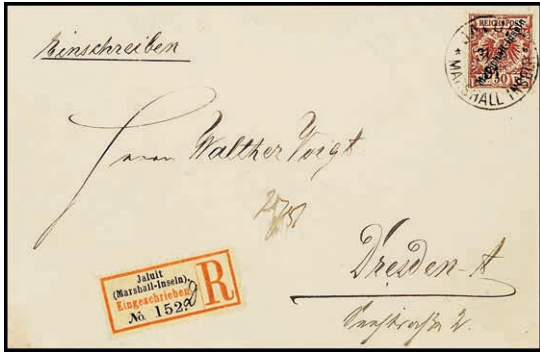 Einschreiben
REICHSPOST
50
JALUIT
* MARSHALL INSELN *
Herrn Walther Voigt
Dresden-A
Seestraße 2.
Jaluit
(Marshall-Inseln).
Eingeschrieben.
No 152.
R